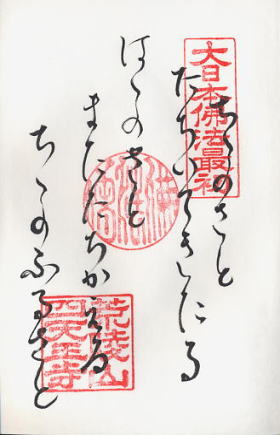 大日本佛法最初
のさと
たちいできたる
はゝのさと
またたちかえる
ちゝのふるさと
荒陵山
四天王寺